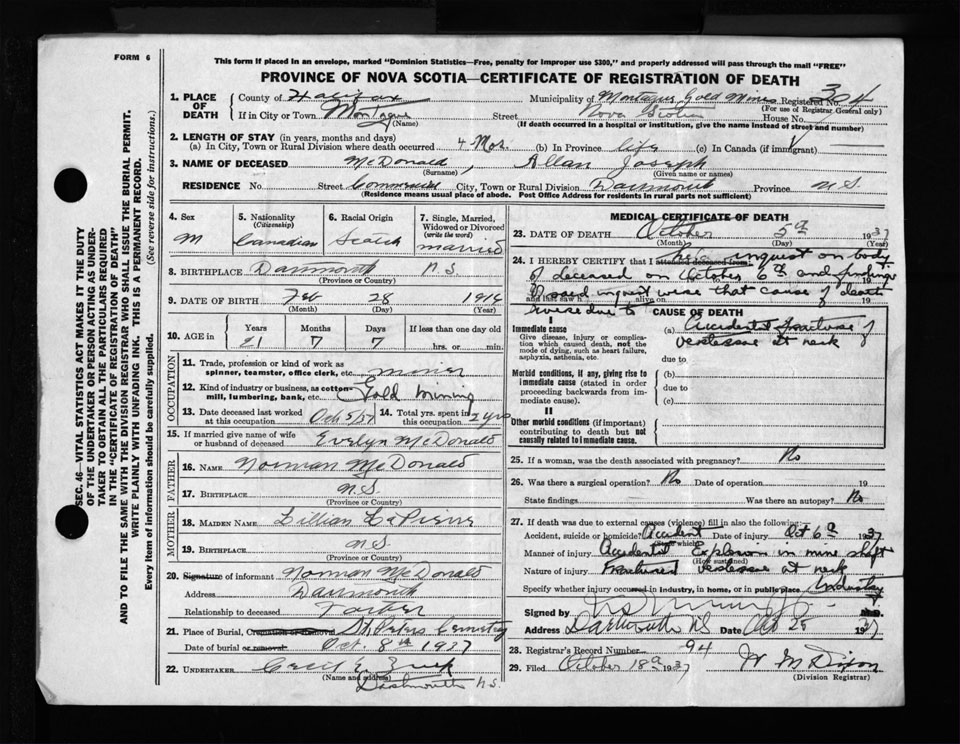 FORM 6
This form if placed in an envelope, marked "Dominion Statistics—Free, penalty for improper use $300," and properly addressed will pass through the mail "FREE"
PROVINCE OF NOVA SCOTIA—CERTIFICATE OF REGISTRATION OF DEATH
SEC. 46—VITAL STATISTICS ACT MAKES IT THE DUTY
OF THE UNDERTAKER OR PERSON ACTING AS UNDER-
TAKER TO OBTAIN ALL THE PARTICULARS REQUIRED
IN THE "CERTIFICATE OF REGISTRATION OF DEATH"
AND TO FILE THE SAME WITH THE DIVISION REGISTRAR WHO SHALL ISSUE THE BURIAL PERMIT.
WRITE PLAINLY WITH UNFADING INK. THIS IS A PERMANENT RECORD.
Every item of information should be carefully supplied. (See reverse side for instructions.)
1. PLACE OF DEATH County of Halifax Municipality of Montague Gold Mines Registered No. 304
(For use of Registrar General only)
If in City or Town Montague Street Nova Scotia House No.
(Name) (If death occurred in a hospital or institution, give the name instead of street and number)
2. LENGTH OF STAY (in years, months and days)
(a) In City, Town or Rural Division where death occurred 4 Mos. (b) In Province life (c) In Canada (if immigrant)
3. NAME OF DECEASED McDonald, Allan Joseph
(Surname) (Given name or names)
RESIDENCE No. Street Commercial City, Town or Rural Division Dartmouth Province N.S.
(Residence means usual place of abode. Post Office Address for residents in rural parts not sufficient)
4. Sex M
5. Nationality (Citizenship) Canadian
6. Racial Origin Scotch
7. Single, Married, Widowed or Divorced (write the word) married
8. BIRTHPLACE Dartmouth N.S.
(Province or Country)
9. DATE OF BIRTH Feb 28 1916
(Month) (Day) (Year)
10. AGE in Years Months Days If less than one day old
21 7 7 hrs. or min.
OCCUPATION
11. Trade, profession or kind of work as spinner, teamster, office clerk, etc. miner
12. Kind of industry or business, as cotton-mill, lumbering, bank, etc. Gold mining
13. Date deceased last worked at this occupation Oct 5/37 14. Total yrs. spent in this occupation 2 yrs
15. If married give name of wife or husband of deceased Evelyn McDonald
FATHER
16. NAME Norman McDonald
17. BIRTHPLACE N.S.
(Province or Country)
MOTHER
18. MAIDEN NAME Lillian LaPierre
19. BIRTHPLACE N.S.
(Province or Country)
20. Signature of informant Norman McDonald
Address Dartmouth
Relationship to deceased Father
21. Place of Burial, Cremation or Removal St. Peters Cemetery
Date of burial or removal Oct. 8th 1937
22. UNDERTAKER Cecil E. Zink
(Name and address) Dartmouth N.S.
MEDICAL CERTIFICATE OF DEATH
23. DATE OF DEATH October 5th 1937
(Month) (Day) (Year)
24. I HEREBY CERTIFY that I attended deceased from inquest on body 19
of deceased on October 6th and findings 19
and last saw h alive on inquest were that cause of death 19
were due to CAUSE OF DEATH
I
Immediate cause (a) Accidental Fracture of
Give disease, injury or complication which caused death, not the mode of dying, such as heart failure, asphyxia, asthenia, etc. vertebrae at neck
due to
Morbid conditions, if any, giving rise to immediate cause (stated in order proceeding backwards from immediate cause). (b)
due to
(c)
II
Other morbid conditions (if important) contributing to death but not causally related to immediate cause.
25. If a woman, was the death associated with pregnancy? No
26. Was there a surgical operation? No Date of operation 19
State findings Was there an autopsy? No
27. If death was due to external causes (violence) fill in also the following:
Accident, suicide or homicide? Accident Date of injury Oct 6th 1937
(State which)
Manner of injury Accidental Explosion in mine shaft
(How sustained)
Nature of injury Fractured vertebrae at neck
Specify whether injury occurred in industry, in home, or in public place Industry
Signed by M.D.
Address Dartmouth NS Date Oct 28 1937
28. Registrar's Record Number 94
29. Filed October 18th 1937 W M Dixon
(Division Registrar)